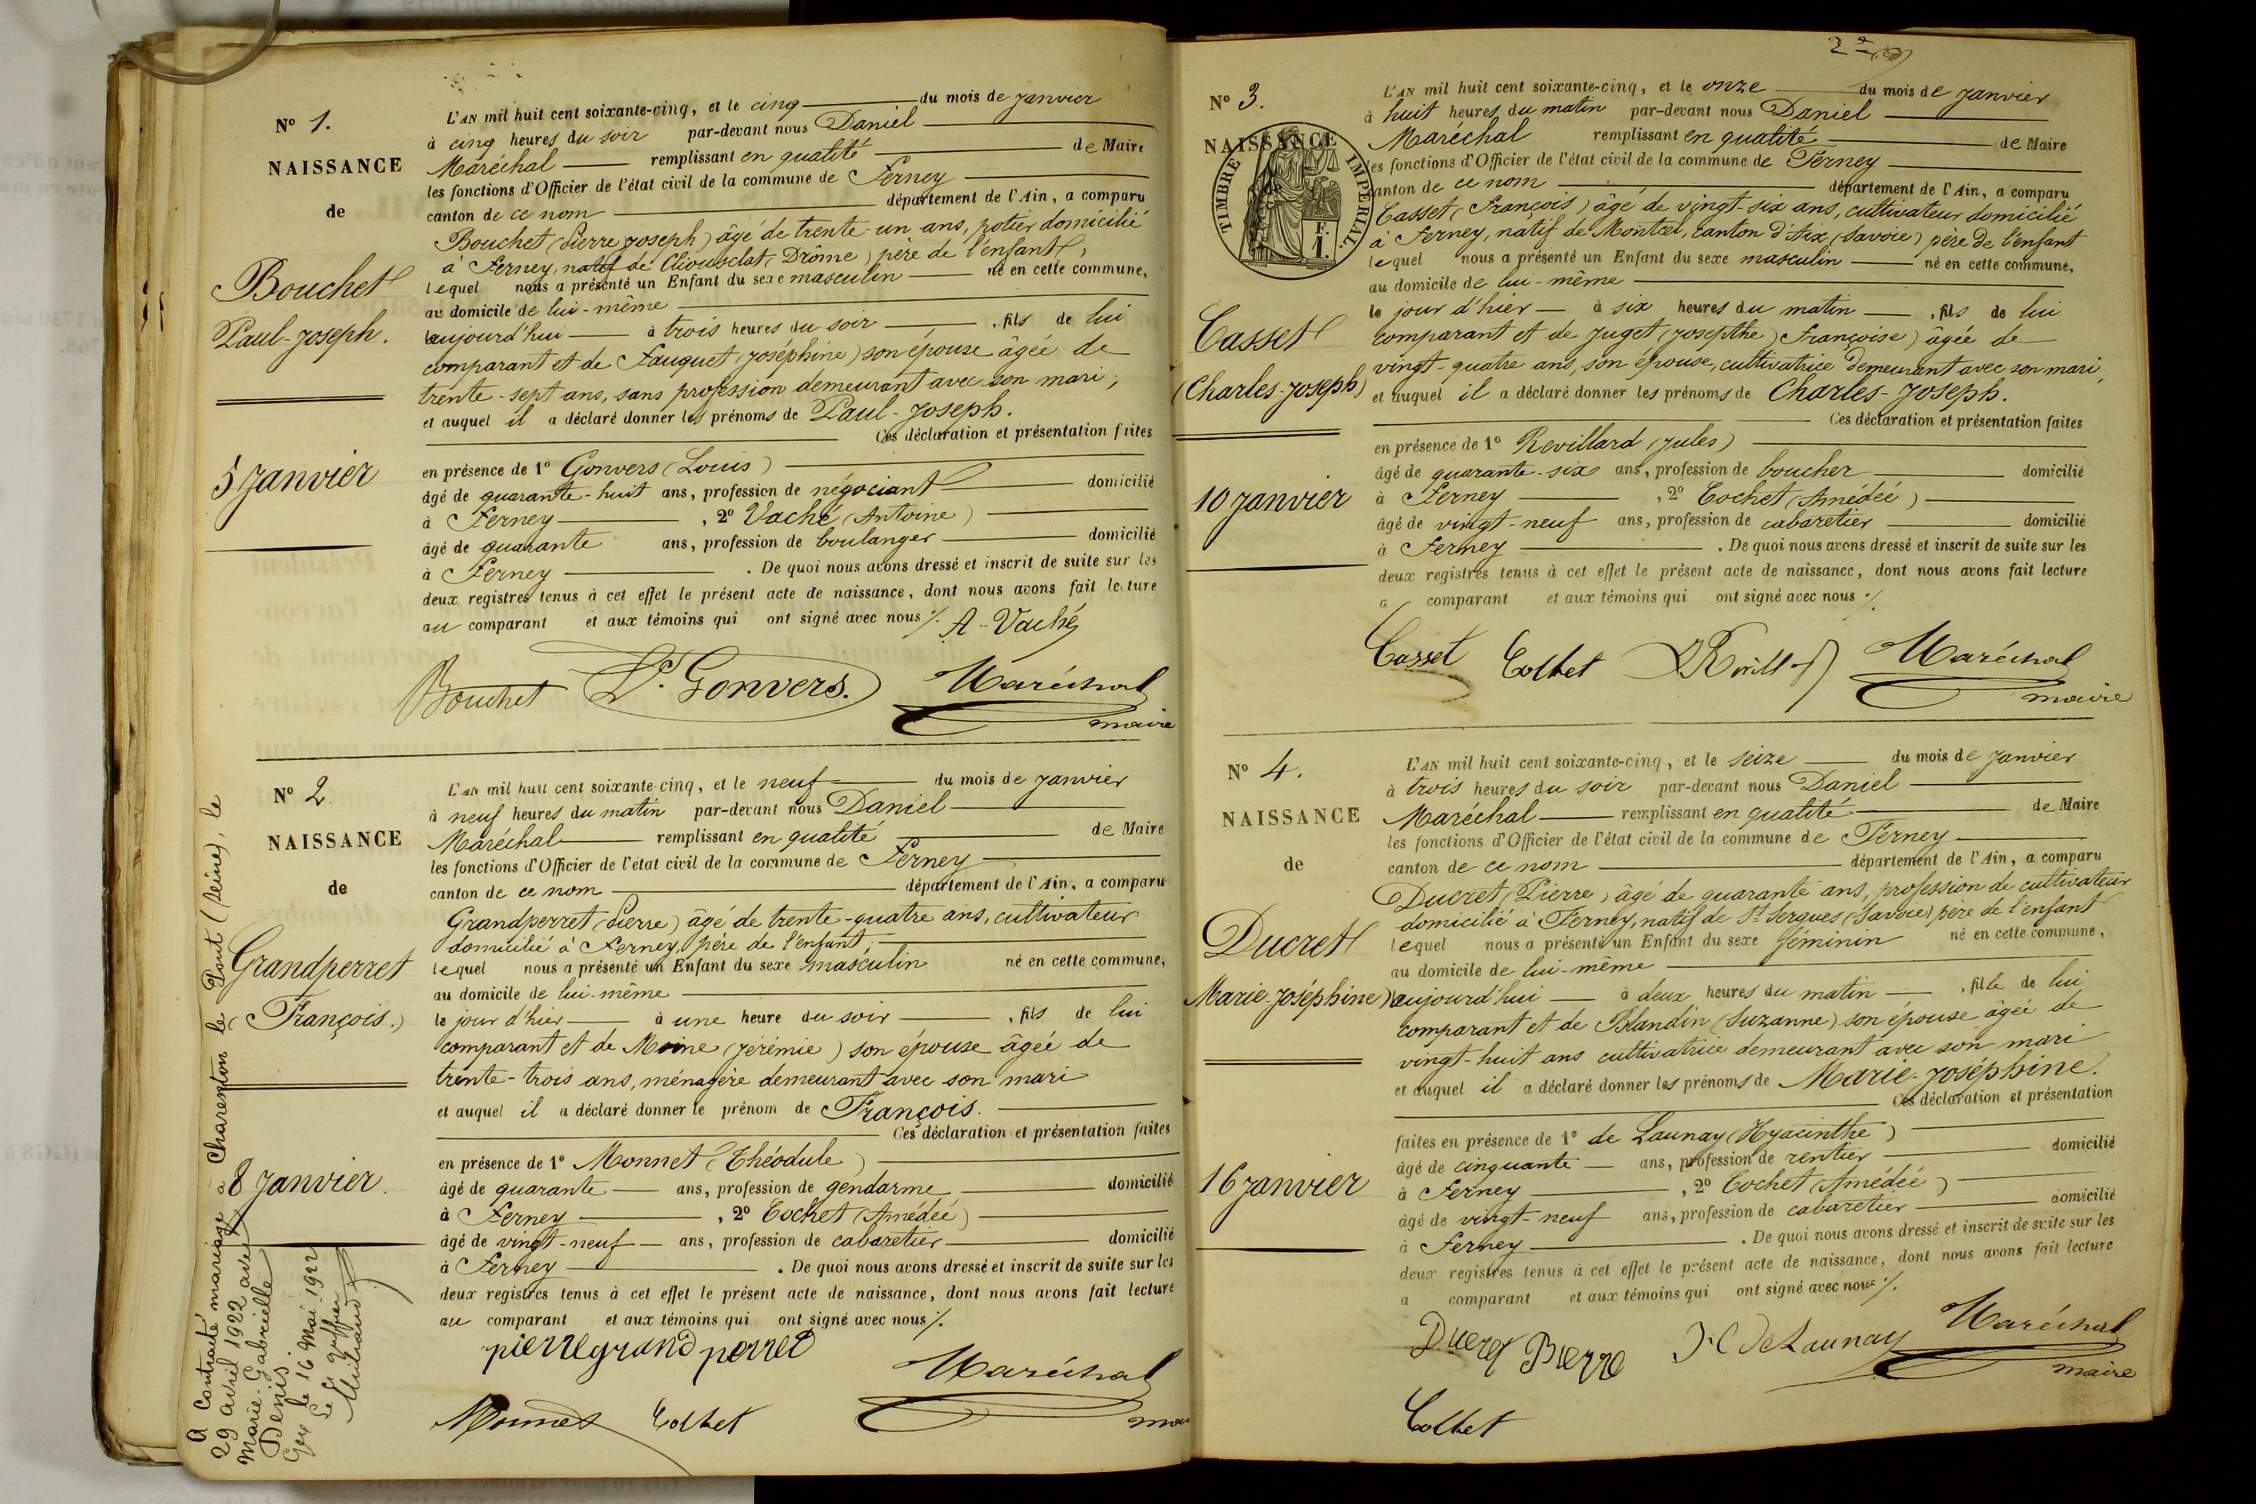 N° 1.
NAISSANCE
de
Bouchet
Paul-Joseph.
5 Janvier
L'AN mil huit cent soixante-cinq, et le cinq du mois de Janvier
à cinq heures du soir par-devant nous Daniel
Maréchal remplissant en qualité de Maire
les fonctions d'Officier de l'état civil de la commune de Ferney
canton de ce nom département de l'Ain, a comparu
Bouchet (Pierre Joseph) âgé de trente-un ans, potier domicilié
à Ferney, natif de Cliousclat, Drôme) père de l'enfant,
lequel nous a présenté un Enfant du sexe masculin né en cette commune,
au domicile de lui-même
aujourd'hui à trois heures du soir, fils de lui
comparant et de Fauquet (Joséphine) son épouse âgée de
trente-sept ans, sans profession demeurant avec son mari;
et auquel il a déclaré donner les prénoms de Paul-Joseph.
Ces déclaration et présentation faites
en présence de 1° Gonvers (Louis)
âgé de quarante-huit ans, profession de négociant domicilié
à Ferney, 2° Vaché (Antoine)
âgé de quarante ans, profession de boulanger domicilié
à Ferney. De quoi nous avons dressé et inscrit de suite sur les
deux registres tenus à cet effet le présent acte de naissance, dont nous avons fait lecture
au comparant et aux témoins qui ont signé avec nous ./.
A. Vaché
Bouchet Ls. Gonvers. Maréchal
maire
N° 2.
NAISSANCE
de
Grandperret
(François.)
8 Janvier.
A contracté mariage à Charenton le Pont (Seine), le
29 avril 1922 avec
Marie-Gabrielle
Denis.
Gex le 16 Mai 1922
Le Greffier
L'AN mil huit cent soixante-cinq, et le neuf du mois de Janvier
à neuf heures du matin par-devant nous Daniel
Maréchal remplissant en qualité de Maire
les fonctions d'Officier de l'état civil de la commune de Ferney
canton de ce nom département de l'Ain, a comparu
Grandperret (Pierre) âgé de trente-quatre ans, cultivateur
domicilié à Ferney, père de l'enfant,
lequel nous a présenté un Enfant du sexe masculin né en cette commune,
au domicile de lui-même
le jour d'hier à une heure du soir, fils de lui
comparant et de Moine (Jérémie) son épouse âgée de
trente-trois ans, ménagère demeurant avec son mari
et auquel il a déclaré donner le prénom de François.
Ces déclaration et présentation faites
en présence de 1° Monnet (Théodule)
âgé de quarante ans, profession de gendarme domicilié
à Ferney, 2° Cochet (Amédée)
âgé de vingt-neuf ans, profession de cabaretier domicilié
à Ferney. De quoi nous avons dressé et inscrit de suite sur les
deux registres tenus à cet effet le présent acte de naissance, dont nous avons fait lecture
au comparant et aux témoins qui ont signé avec nous ./.
pierre grand perret
Maréchal
Monnet Cochet
N° 3.
NAISSANCE
TIMBRE IMPÉRIAL.
1F.
Casset
(Charles-Joseph)
10 Janvier
L'AN mil huit cent soixante-cinq, et le onze du mois de Janvier
à huit heures du matin par-devant nous Daniel
Maréchal remplissant en qualité de Maire
les fonctions d'Officier de l'état civil de la commune de Ferney
canton de ce nom département de l'Ain, a comparu
Casset (François) âgé de vingt-six ans, cultivateur domicilié
à Ferney, natif de Montcel, canton d'Aix, (Savoie) père de l'enfant
lequel nous a présenté un Enfant du sexe masculin né en cette commune,
au domicile de lui-même
le jour d'hier à six heures du matin, fils de lui
comparant et de Juget (Josepthe) Françoise) âgée de
vingt-quatre ans, son épouse, cultivatrice demeurant avec son mari,
et auquel il a déclaré donner les prénoms de Charles-Joseph.
Ces déclaration et présentation faites
en présence de 1° Revillard (Jules)
âgé de quarante-six ans, profession de boucher domicilié
à Ferney, 2° Cochet (Amédée)
âgé de vingt-neuf ans, profession de cabaretier domicilié
à Ferney. De quoi nous avons dressé et inscrit de suite sur les
deux registres tenus à cet effet le présent acte de naissance, dont nous avons fait lecture
a comparant et aux témoins qui ont signé avec nous ./.
Casset Cochet Maréchal
maire
N° 4.
NAISSANCE
de
Ducret
Marie-Joséphine)
16 Janvier
L'AN mil huit cent soixante-cinq, et le seize du mois de Janvier
à trois heures du soir par-devant nous Daniel
Maréchal remplissant en qualité de Maire
les fonctions d'Officier de l'état civil de la commune de Ferney
canton de ce nom département de l'Ain, a comparu
Ducret (Pierre) âgé de quarante ans, profession de cultivateur
domicilié à Ferney, natif de St Sergues (Savoie) père de l'enfant
lequel nous a présenté un Enfant du sexe féminin né en cette commune,
au domicile de lui-même
aujourd'hui à deux heures du matin, fille de lui
comparant et de Blandin (Suzanne) son épouse âgée de
vingt-huit ans cultivatrice demeurant avec son mari
et auquel il a déclaré donner les prénoms de Marie-Joséphine.
Ces déclaration et présentation
faites en présence de 1° de Launay (Hyacinthe)
âgé de cinquante ans, profession de rentier domicilié
à Ferney, 2° Cochet (Amédée)
âgé de vingt-neuf ans, profession de cabaretier domicilié
à Ferney. De quoi nous avons dressé et inscrit de suite sur les
deux registres tenus à cet effet le présent acte de naissance, dont nous avons fait lecture
a comparant et aux témoins qui ont signé avec nous ./.
Ducret Pierre H de Launay Maréchal
maire
Cochet